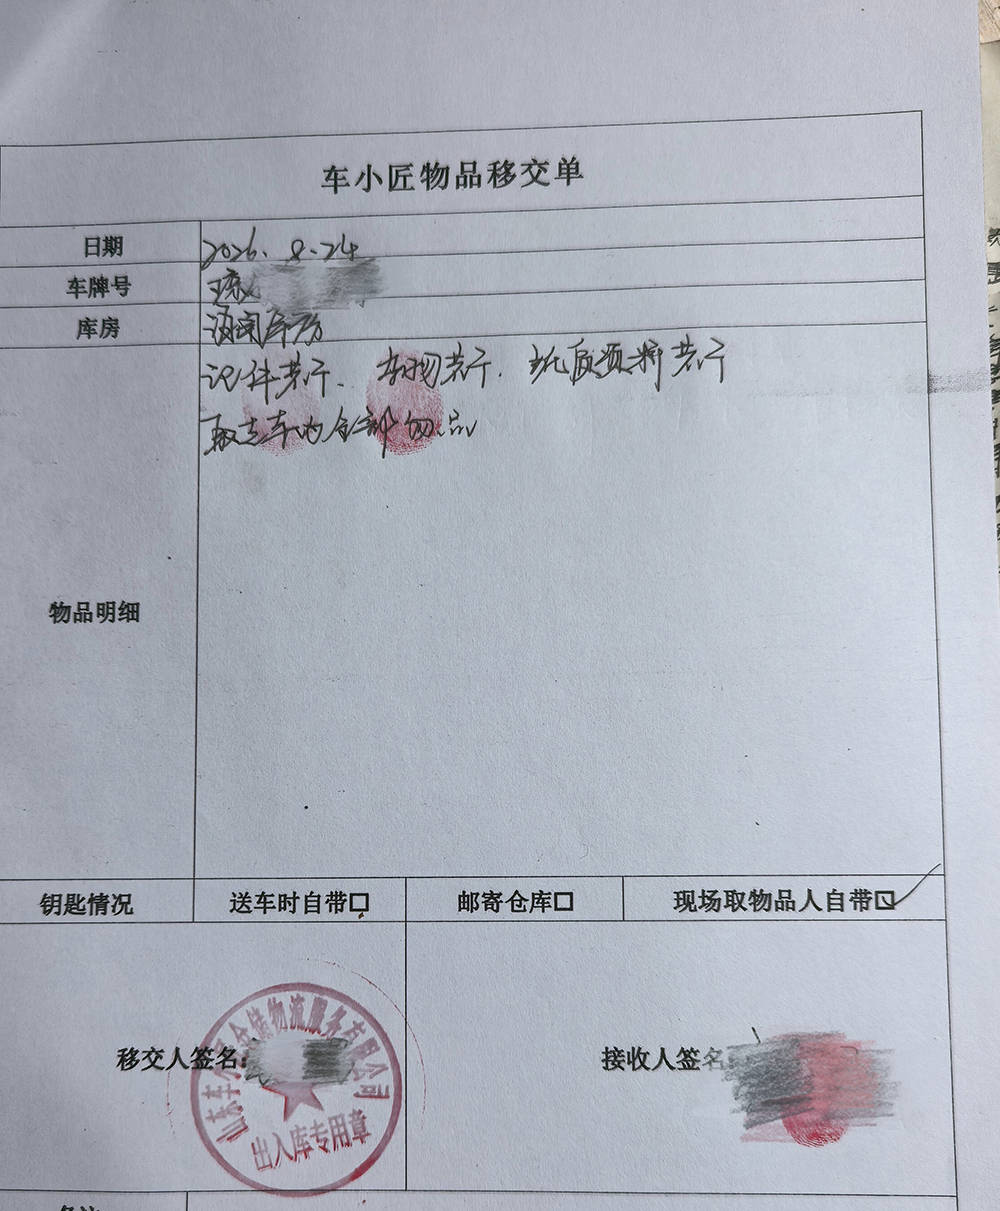 车小匠物品移交单
日期 2026.8.24
车牌号 琼
库房 海南库房
证件若干、车物若干、纸质资料若干
取走车内全部物品
物品明细
钥匙情况 送车时自带☐ 邮寄仓库☐ 现场取物品人自带☑
移交人签名: 接收人签名:
山东车小匠仓储物流服务有限公司
出入库专用章